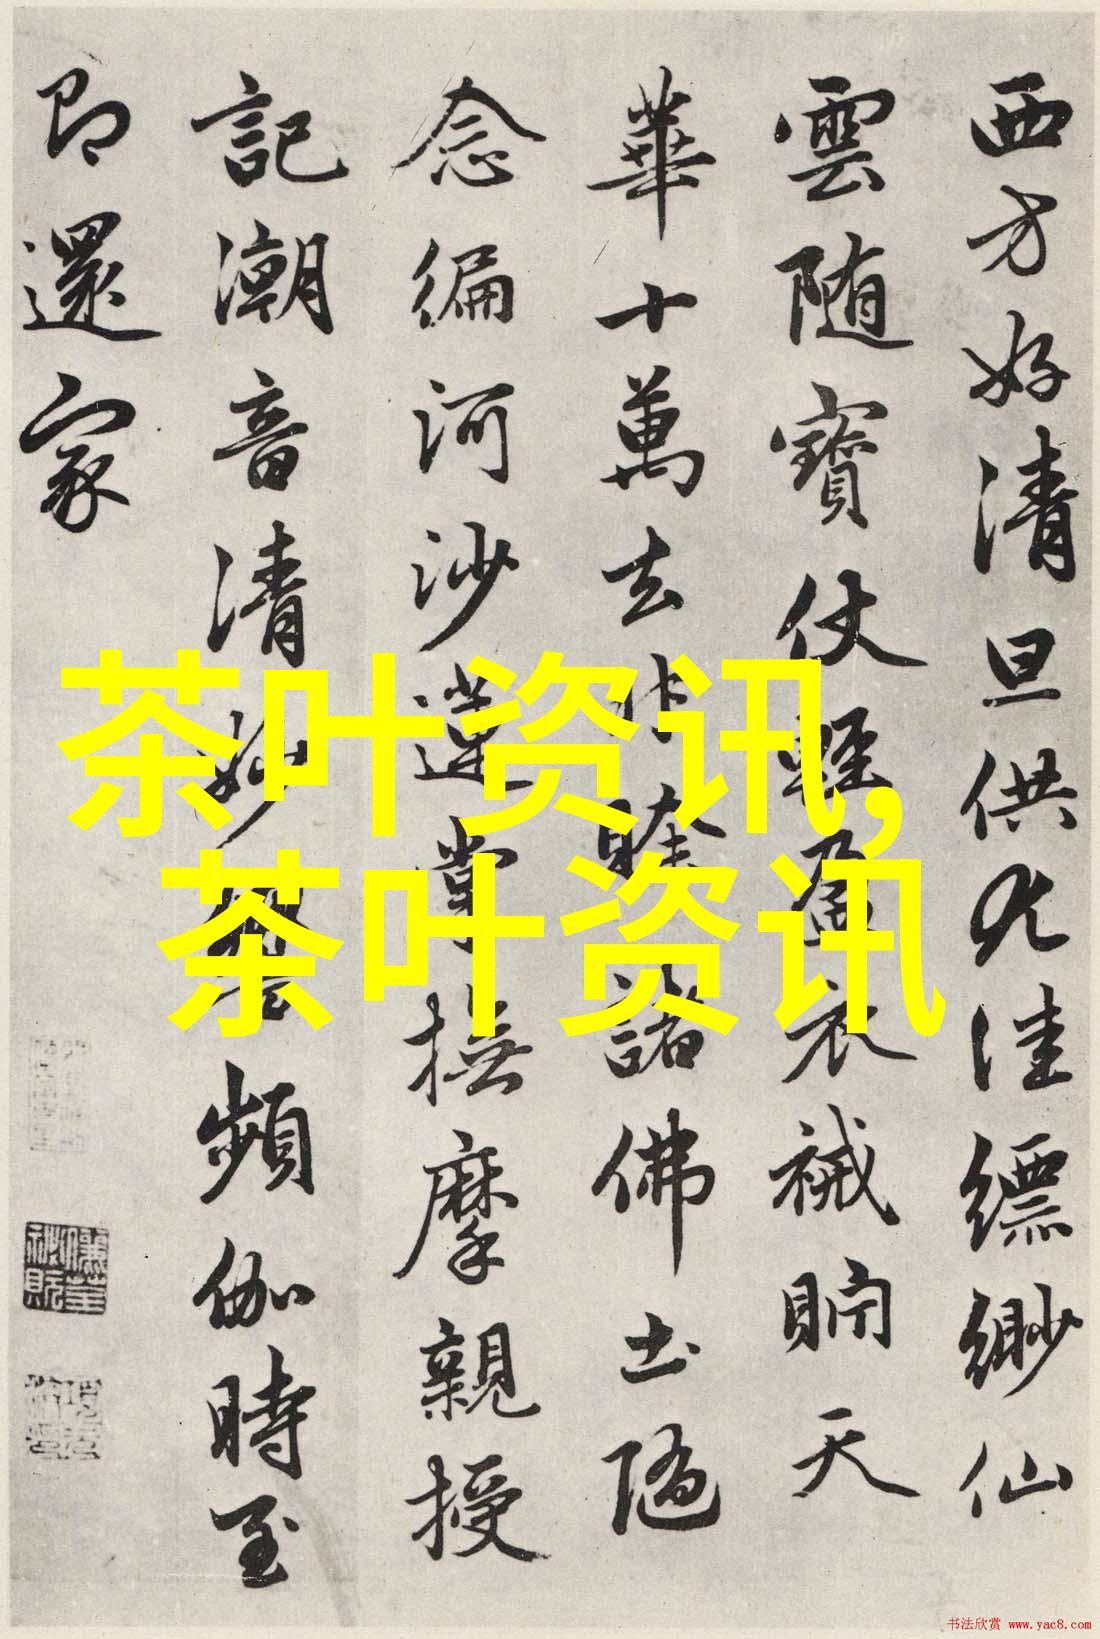 西方好清旦供尤佳缥缈仙
雲随寳仗輕盈衣祴貯天
華十萬去非賖諸佛土隨
念编河沙蓮掌撫摩親授
記潮音清妙頻伽時至
即還家
茶叶资讯,
茶叶资讯
书法欣赏 www.yac8.com